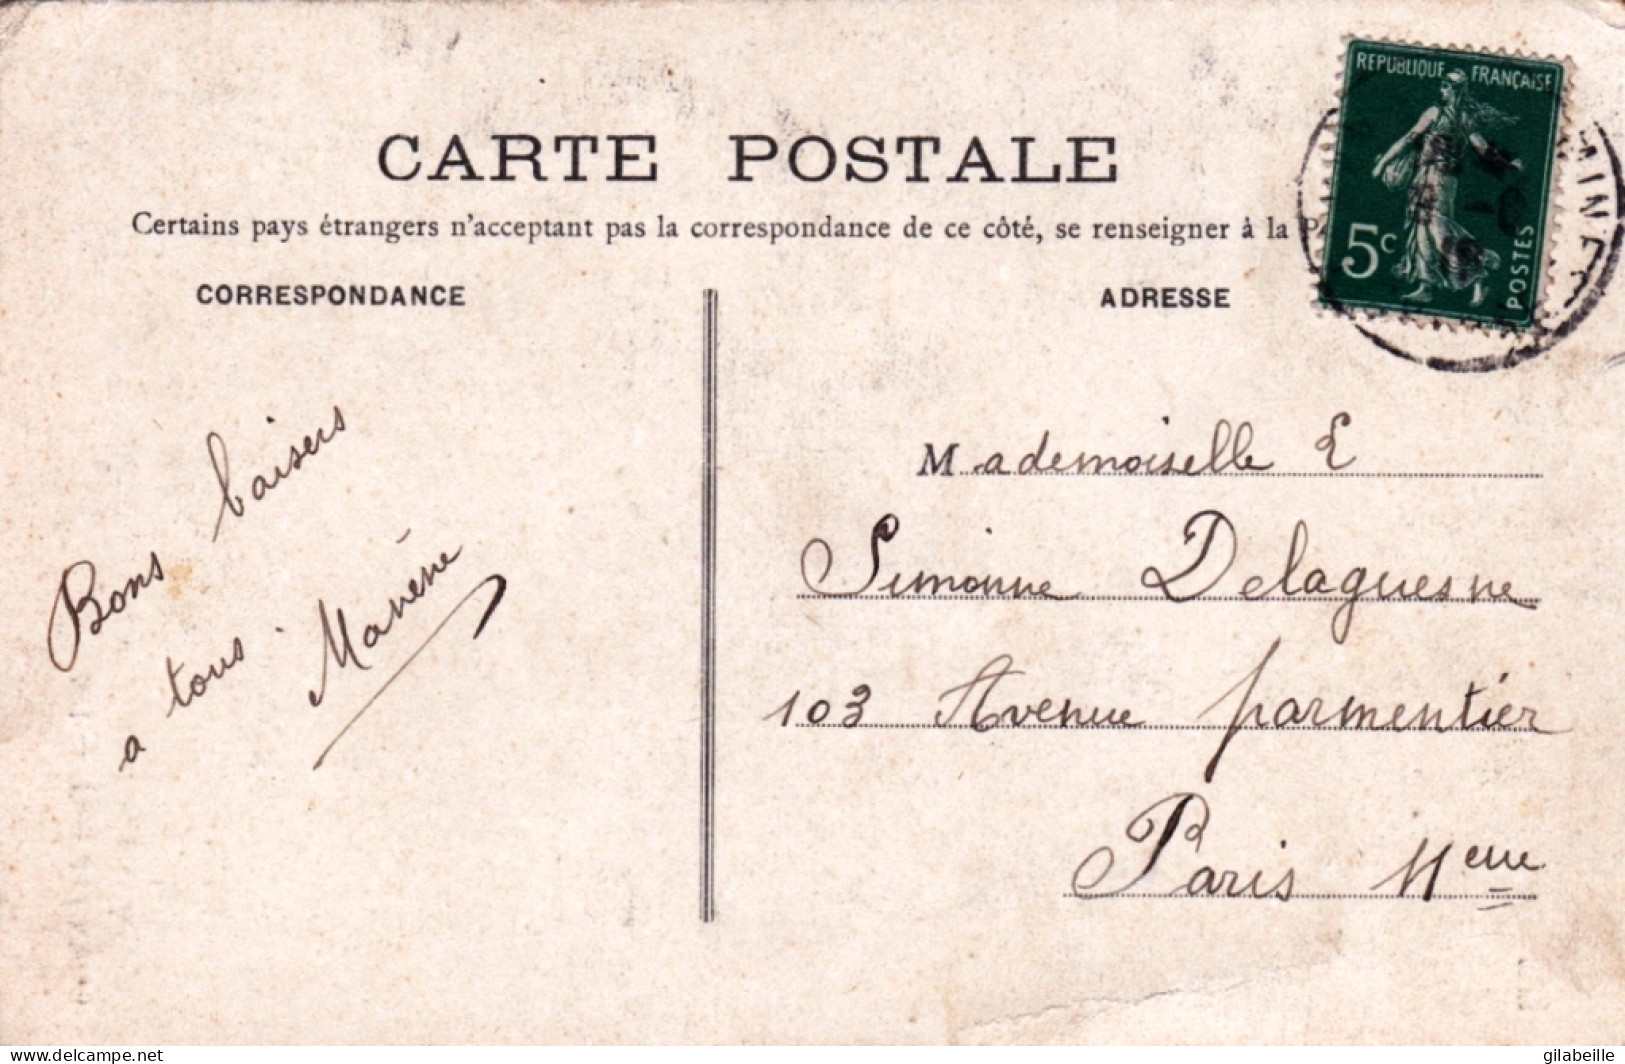 RÉPUBLIQUE FRANÇAISE
5c
POSTES
CARTE POSTALE
Certains pays étrangers n'acceptant pas la correspondance de ce côté, se renseigner à la
CORRESPONDANCE
ADRESSE
Bons baisers
a tous
Mademoiselle E
Simonne Delaguesne
103 Avenue parmentier
Paris 11eme
delcampe.net
gilabeille